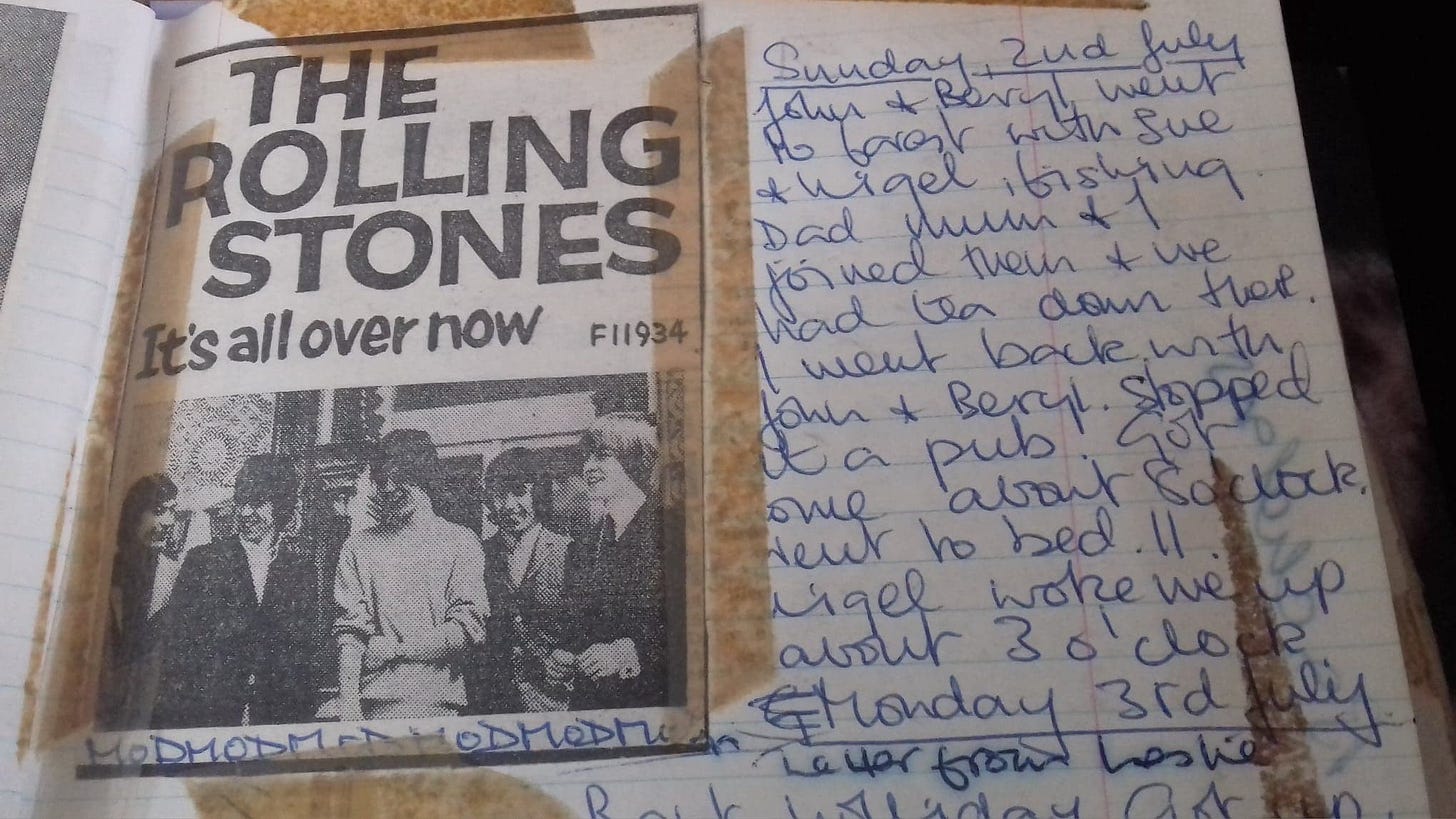 THE
ROLLING
STONES
It's all over now F11934
MODMODM MODMODM
Sunday, 2nd July
John & Beryl went
to with Sue
& Nigel, fishing.
Dad Mum & I
joined them & we
had tea down there.
I went back with
John & Beryl. Stopped
at a pub. Got
ome about 8 o'clock.
went to bed. 11.
Nigel woke me up
about 3 o'clock
Monday 3rd July
Letter from Leslie
Bank holiday Got up.